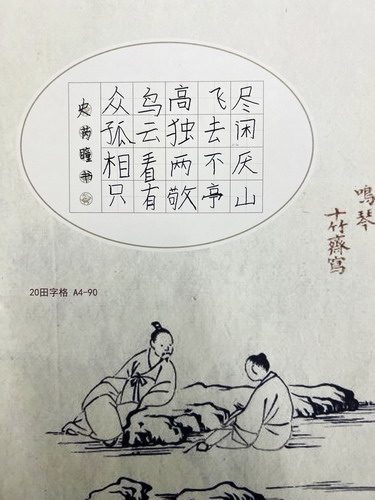 众鸟高飞尽
孤云独去闲
相看两不厌
只有敬亭山
史芮瞳书
鳴琴
十竹齋寫
20田字格 A4-90